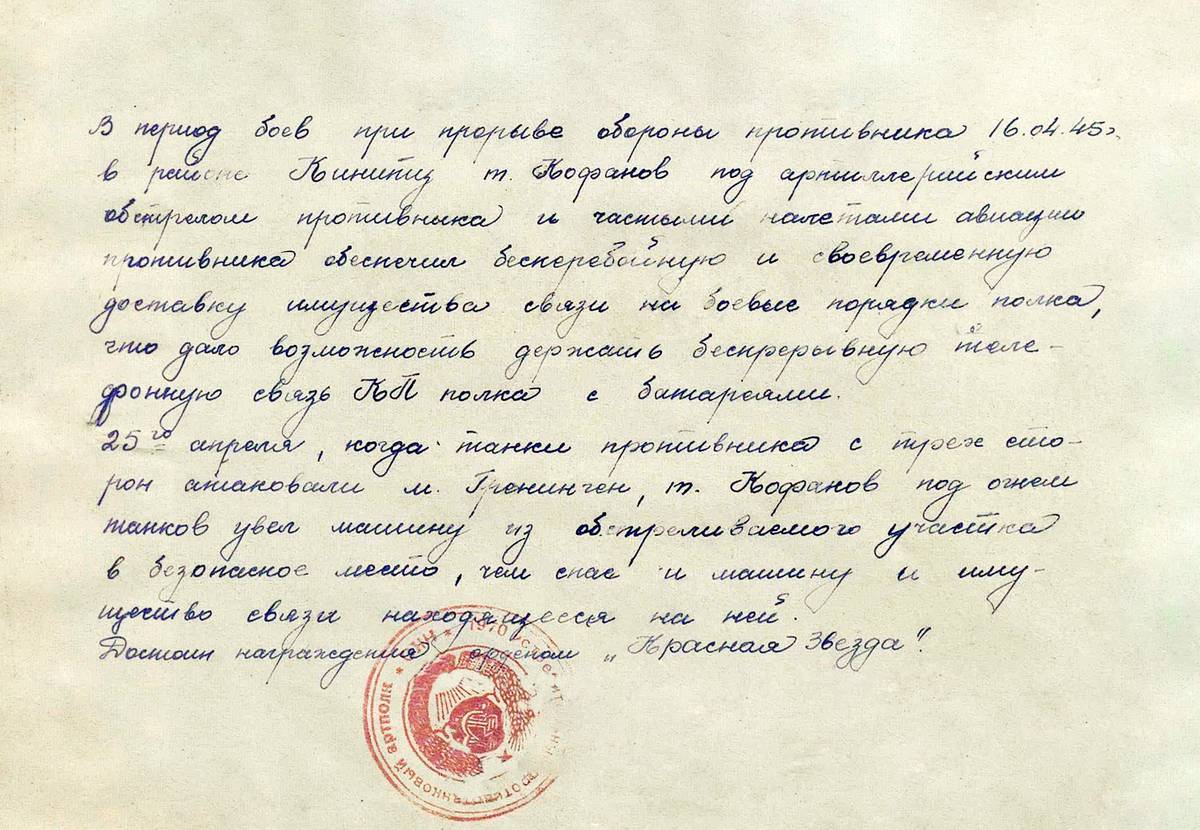 В период боев при прорыве обороны противника 16.04.45г.
в районе Кинитц т. Кофанов под артиллерийским
обстрелом противника и частыми налетами авиации
противника обеспечил бесперебойную и своевременную
доставку имущества связи на боевые порядки полка,
что дало возможность держать беспрерывную теле-
фонную связь КП полка с батареями.
25го апреля, когда танки противника с трех сто-
рон атаковали м. Гренинген, т. Кофанов под огнем
танков увел машину из обстреливаемого участка
в безопасное место, чем спас и машину и иму-
щество связи находящееся на ней.
Достоин награждения орденом „Красная Звезда".
1970 артполк